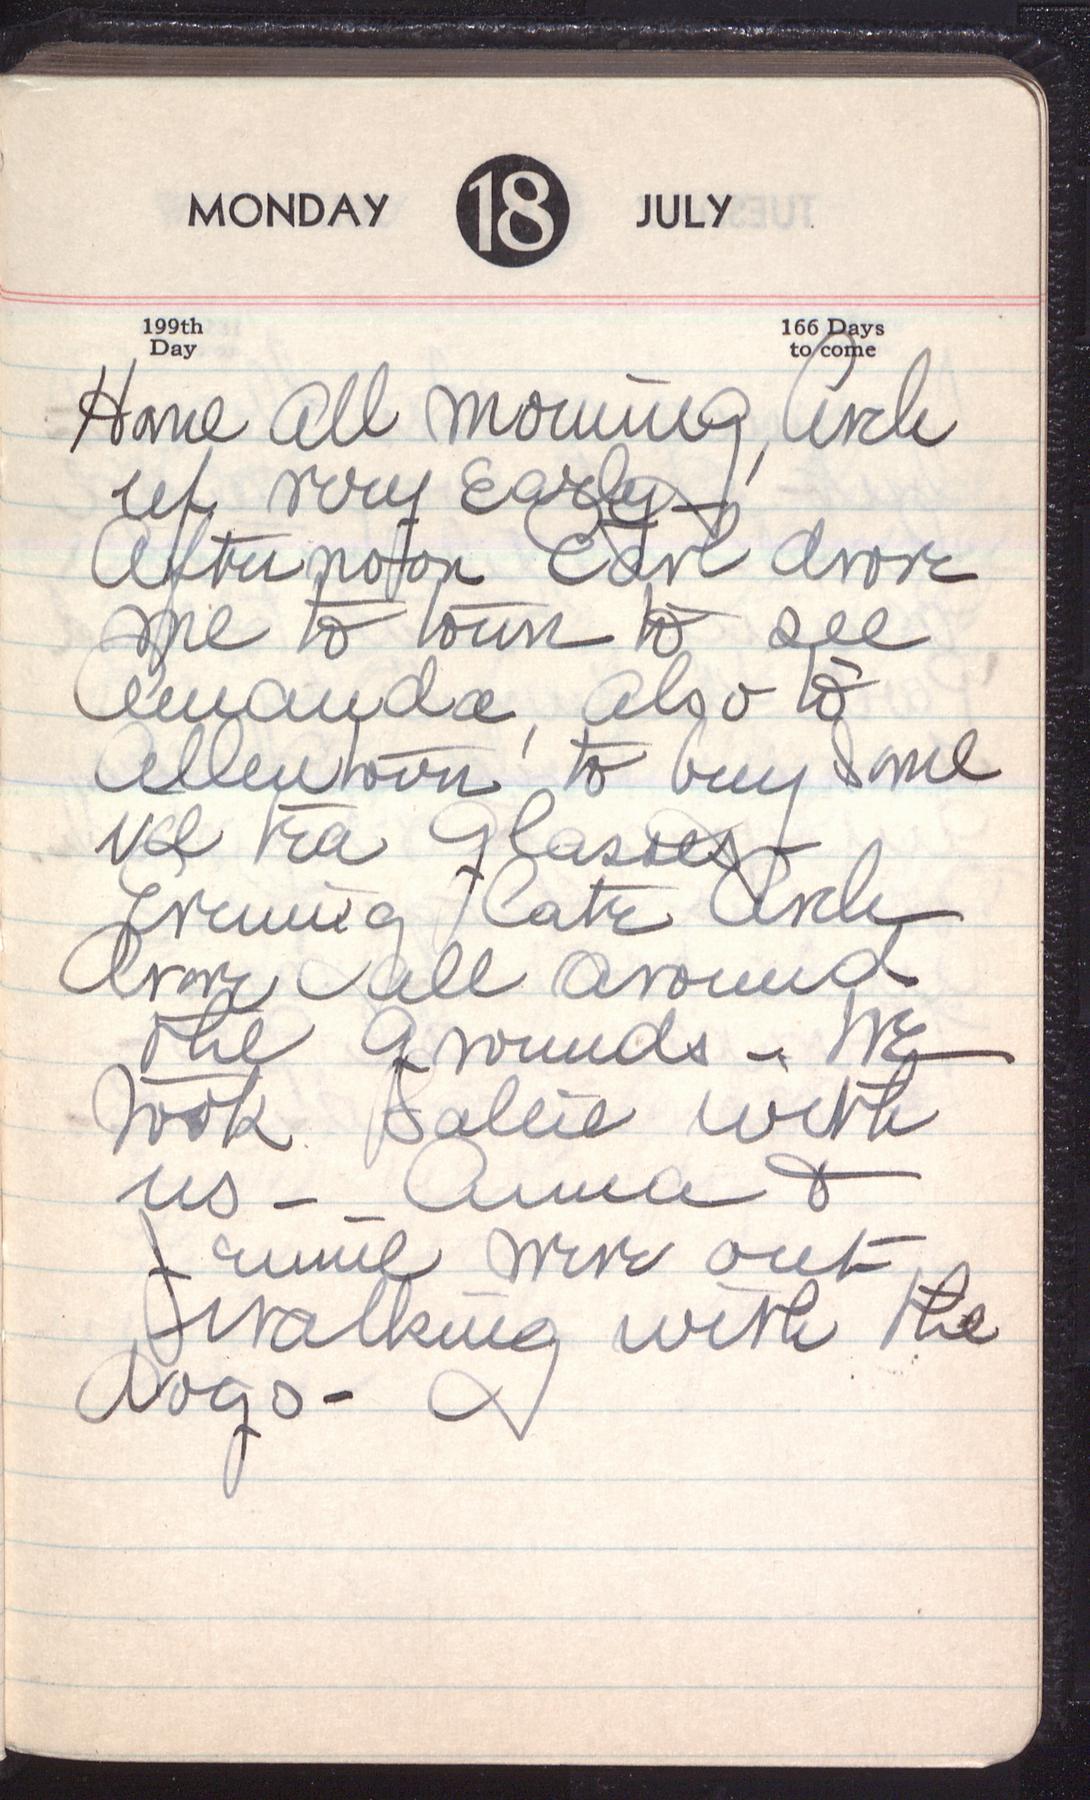 MONDAY 18 JULY
199th Day
166 Days to come
Home all morning, Arch
up very early -
Afternoon Earl drove
me to town to see
Amanda, also to
Allentown to buy some
ice tea glasses -
Evening late Arch
drove all around
the grounds - We
took Sallie with
us - Anna &
Jennie were out
walking with the
Dogs -